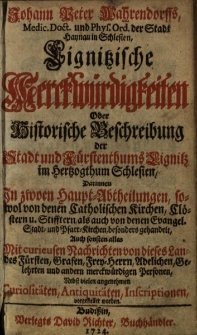 Johann Peter Wahrendorffs,
Medic. Doct. und Phys. Ord. der Stadt
Haynau in Schlesien,
Lignitzische
Merckwürdigkeiten
Oder
Historische Beschreibung
der
Stadt und Fürstenthums Lignitz
im Hertzogthum Schlesien,
Darinnen
In zwoen Haupt-Abtheilungen, so-
wol von denen Catholischen Kirchen, Clö-
stern u. Stifftern als auch von denen Evangel.
Stadt- und Pfarr-Kirchen besonders gehandelt,
Auch sonsten alles
Mit curieusen Nachrichten von dieses Lan-
des Fürsten, Grafen, Frey-Herrn, Adelichen, Ge-
lehrten und andern merckwürdigen Personen,
Nebst vielen angenehmen
Curiositäten, Antiquitäten, Inscriptionen,
vorgestellet worden.
Budißin,
Verlegts David Richter, Buchhändler.
1724.